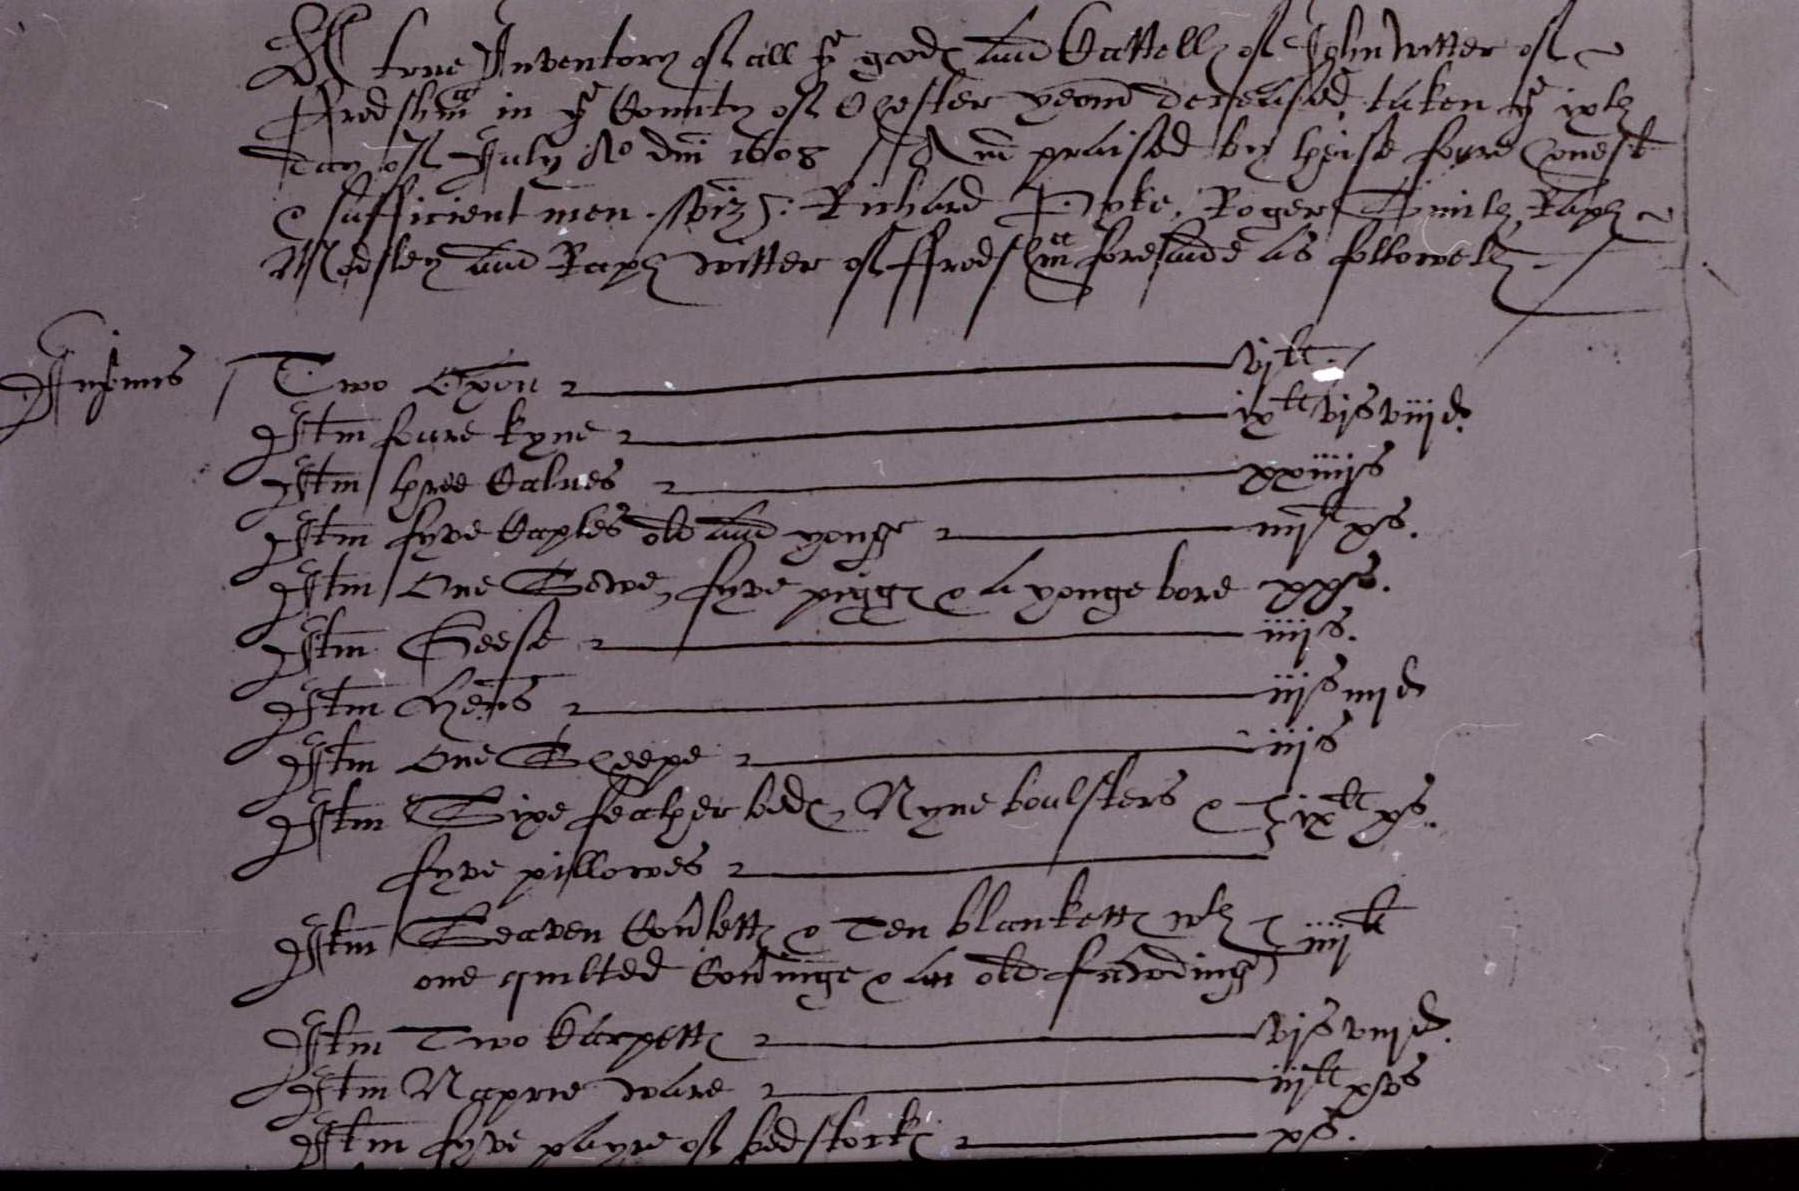 A true Inventory of all ye goodes and Cattells of John Witter of
Frodsham in ye County of Chester yeoma deceased, taken ye ixth
day of July Ao dni 1608 And praised by these foure honest
& sufficient men. viz: Richard Pyke, Roger Smith, Raph
Medley and Raph Witter of ffrodsham foresaide as followeth
Inprimis Two Oxen vjli.
Itm foure kyne ixli vjs viijd.
Itm three Calues xxiiijs
Itm fyve Caples old and yonge iiijli xs.
Itm One Sowe, fyve pigges & a yonge bore xxs.
Itm Geese iiijs.
Itm Hens iijs iiijd
Itm One Sheepe iijs
Itm Sixe feather beds, Nyne boulsters & ixli xs.
fyve pillowes
Itm Seaven Cov'letts & Ten blanketts wth iiijli
one quilted Cov'inge & an old
Itm Two Carpetts vjs viijd.
Itm Naprie ware iijli xvs
Itm fyve payre of bedstocks xs.